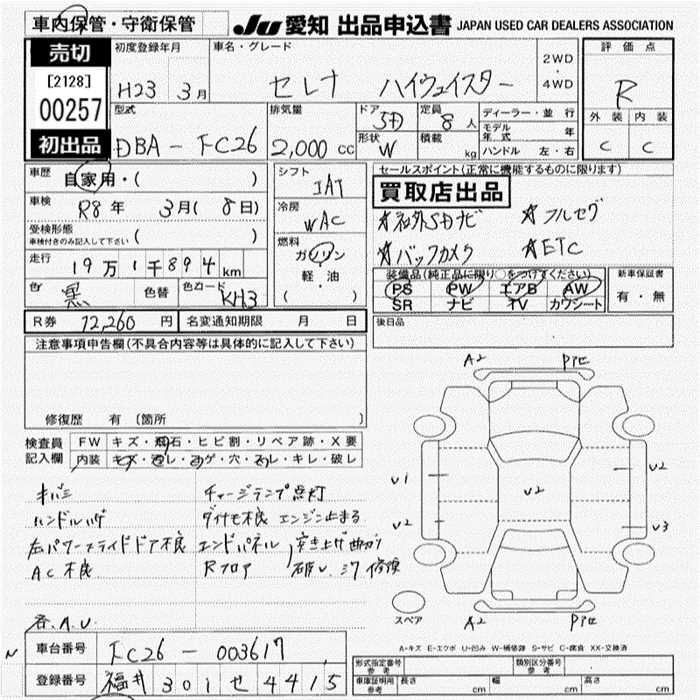 車内保管・守衛保管
JU 愛知 出品申込書 JAPAN USED CAR DEALERS ASSOCIATION
売切
[2128]
00257
初出品
初度登録年月
H23 3月
車名・グレード
セレナ ハイウェイスター
2WD
・
4WD
評価点
R
外装 内装
C C
型式
DBA-FC26
排気量
2,000 cc
ドア
5D
形状
W
定員
8人
積載
kg
ディーラー・並行
モデル年式 年
ハンドル 左・右
車歴
自家用・( )
車検
R8年 3月(8日)
受検形態
車検付きのみ記入して下さい ( )
走行
19万1千894km
色 黒 色替 色コード KH3
シフト
IAT
冷房
WAC
燃料
ガソリン
軽・油
( )
セールスポイント(正常に機能するものに限ります)
買取店出品
☆社外SDナビ ☆フルセグ
☆バックカメラ ☆ETC
装備品(純正品に限り○をつけてください)
PS PW エアB AW
SR ナビ TV カワシート
新車保証書
有・無
後日品
R券 12,260円 名変通知期限 月 日
注意事項申告欄(不具合内容等は具体的に記入して下さい)
修復歴 有 (箇所 )
検査員記入欄
FW キズ・飛石・ヒビ割・リペア跡・X要
内装 キズ・汚レ・コゲ・穴・スレ・キレ・破レ
キバミ チャージランプ点灯
ハンドルハゲ ダイナモ不良 エンジン止まる
左パワースライドドア不良 エンドパネル 突き上げ曲がり
AC不良 Rフロア
各.A.U
A2
V1
V2
V2
V2
V3
A2
スペア
A-キズ E-エクボ U-凹み W-補修跡 S-サビ C-腐食 XX-交換済
N
車台番号 FC26-003617
登録番号 福井 301 せ 4415
形式指定番号 参考
類別区分番号 参考
車庫証明用 参考 長さ cm 幅 cm 高さ cm